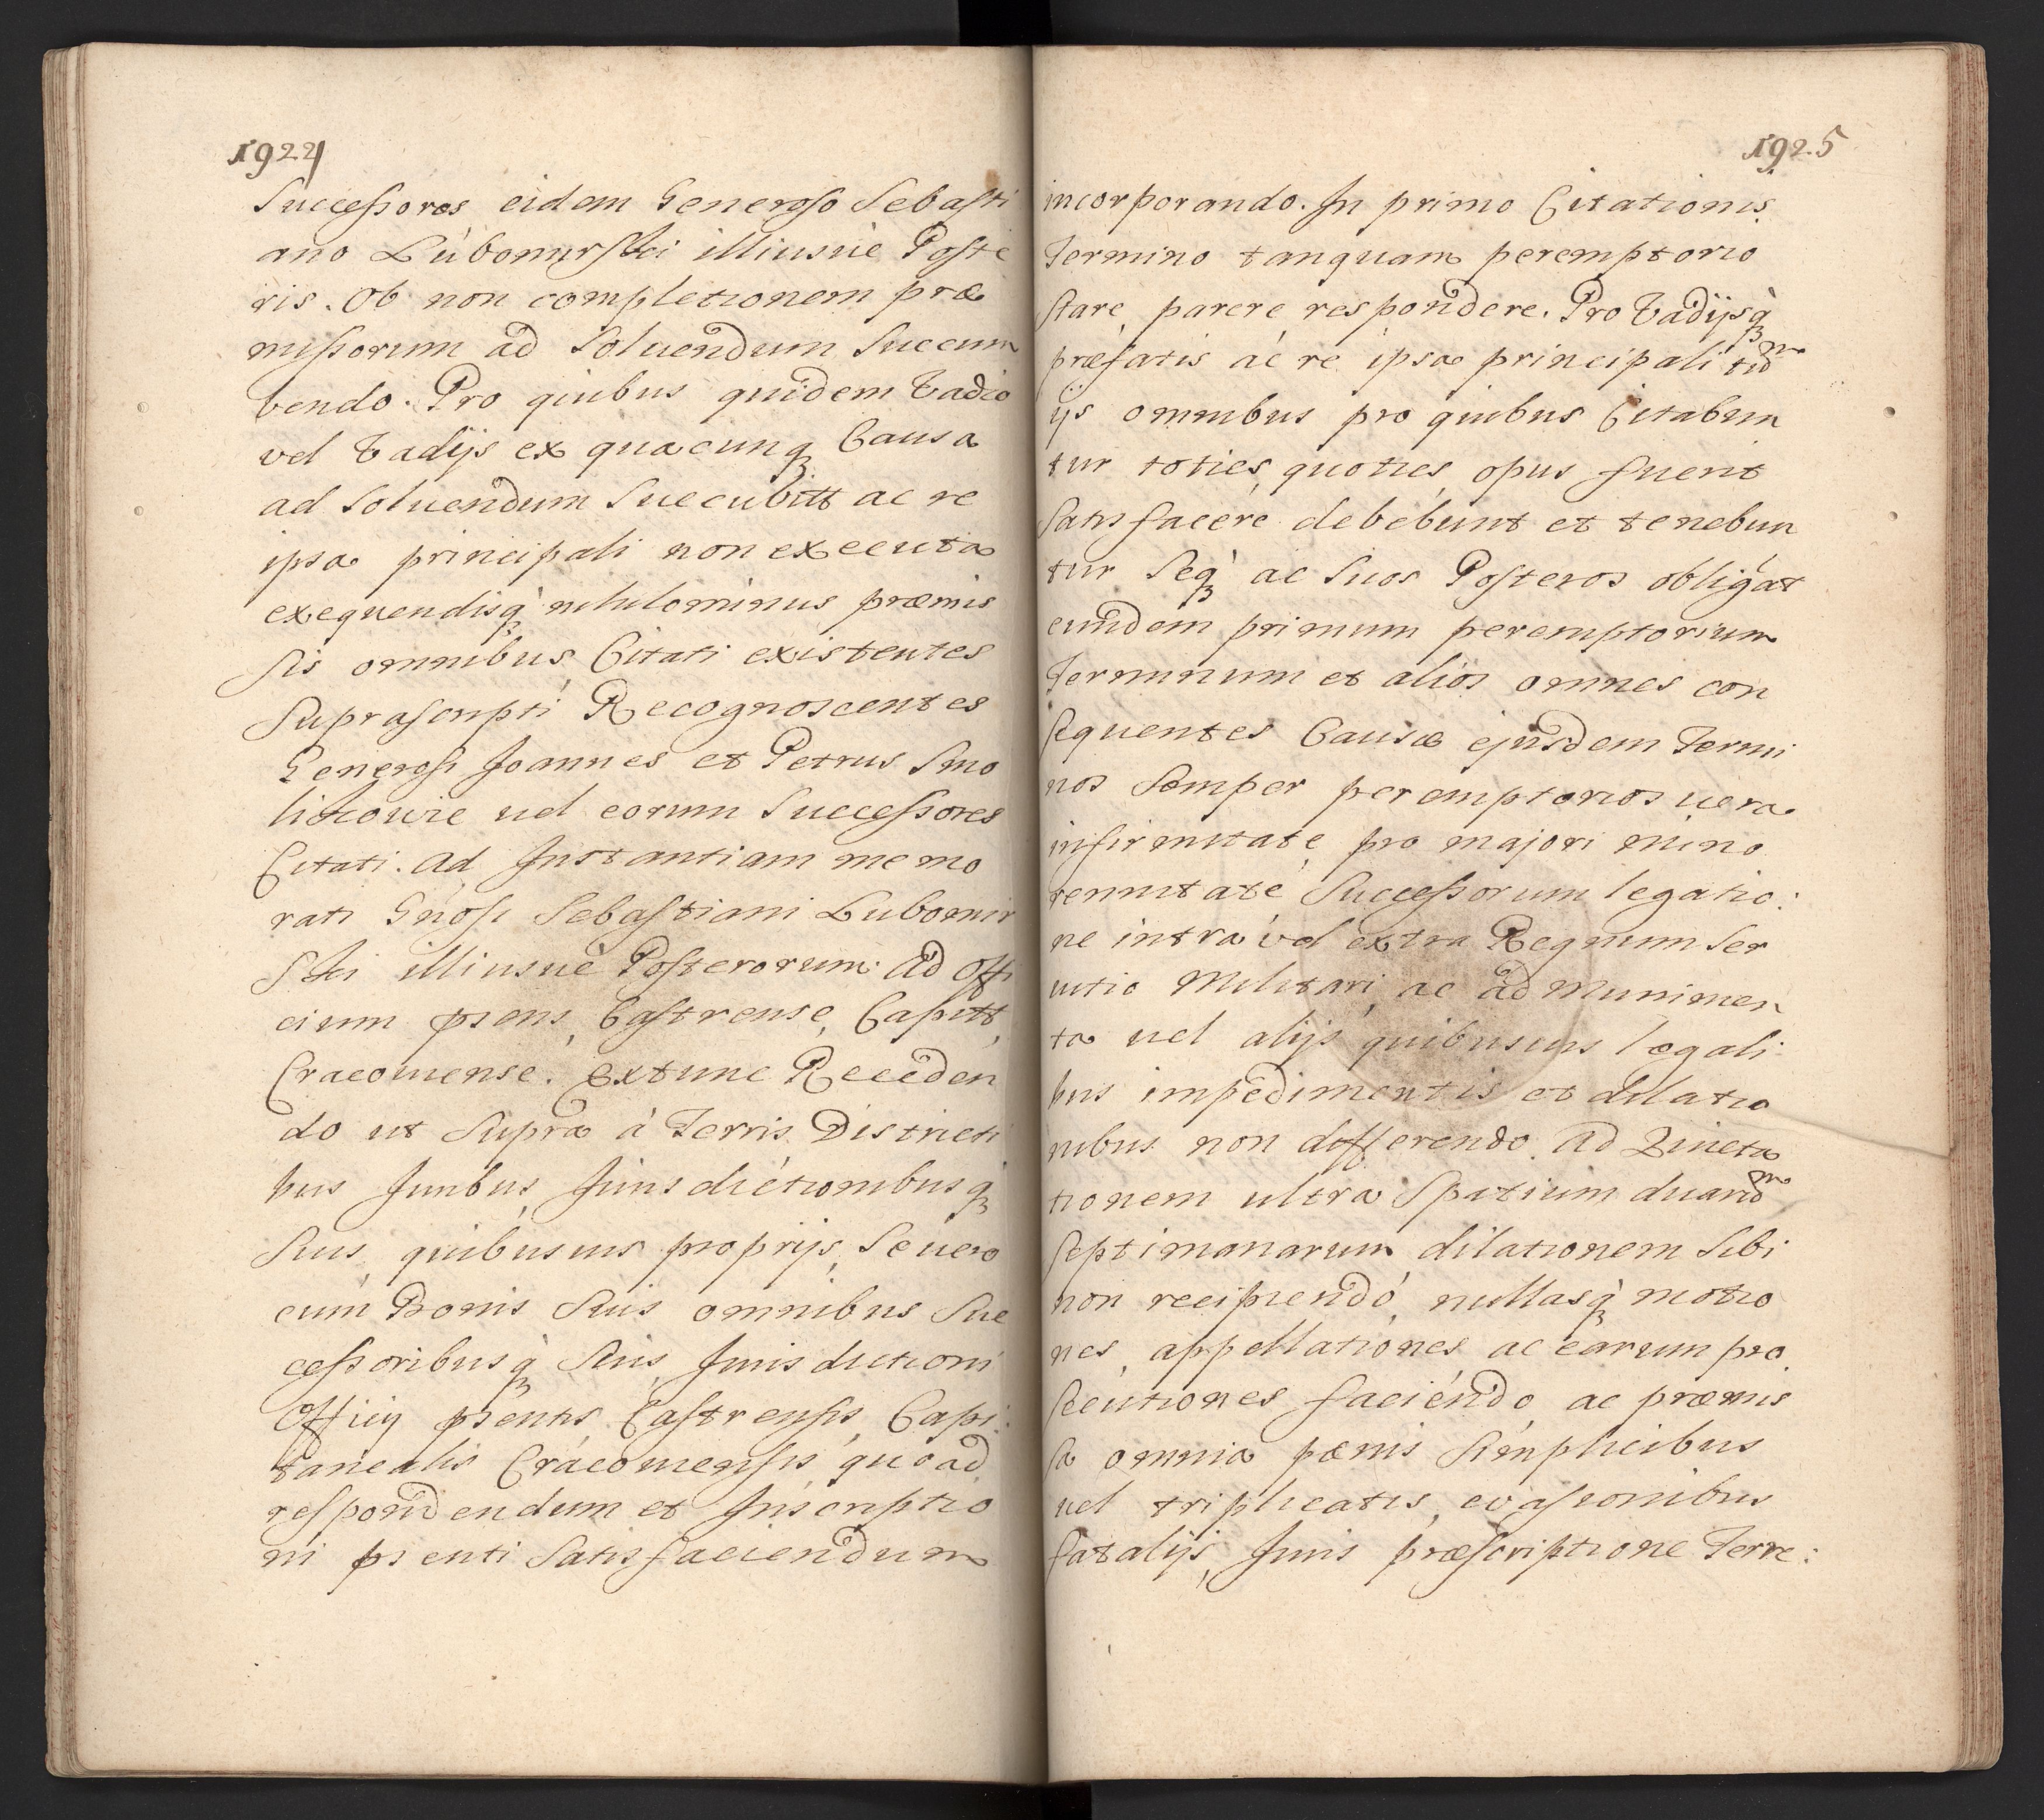 1924
Successores eidem Generoso Sebasti
ano Lubomirski illiusvè Poste
ris. Ob non completionem præ
missorum ad Solvendum Succum
bendo. Pro quibus quidem Vadio
vel Vadijs ex quacunq Causa
ad Solvendum Succubitt ac re
ipsa principali non executa
exequendisq nihilominus præmis
sis omnibus Citati existentes
Suprascripti Recognoscentes
Generosi Joannes et Petrus Smo
likowie vel eorum Successores
Citati. ad Instantiam memo
rati Gnosi Sebastiani Lubomir
Ski illiusvè Posterorum ad Offi
cium psens, Castrense, Capitt,
Cracoviense. Extunc Receden
do ut Supra à Terris Districti
bus Juribus, Jurisdictionibusq
Suis quibusvis proprijs, Se vero
cum Bonis Suis omnibus Suc
cessoribusq Suis, Jurisdictioni
Officij psentis Castrensis, Capi:
tanealis Cracoviensis quoad
respondendum et Inscriptio
ni psenti Satisfaciendum
1925
incorporando. In primo Citationis
Termino tanquam peremptorio
Stare, parere respondere. Pro Vadijsq
præfatis ac re ipsa principali
ijs omnibus pro quibus Citabun
tur toties quoties opus fuerit
Satisfacere debebunt et tenebun
tur Seq ac Suos Posteros obligat
eundem primum peremptorium
Terminum et alios omnes con
sequentes Causæ ejusdem Termi
nos Semper peremptorios vera
infirmitate, pro majori mino
rennitate Successorum legatio:
ne intra vel extra Regnum Ser
vitio Militari, ac ad Munimen
ta vel alijs quibusvis legali
bus impedimentis et dilatio
nibus non differendo. Ad Quieta
tionem ultra Spatium duarum
Septimanarum dilationem Sibi
non recipiendo, nullasq motio
nes, appellationes ac earum pro
secutiones faciendo ac præmis
sa omnia pœnis Simplicibus
vel triplicatis, evasionibus
fatalijs, Juris præscriptione Terre: